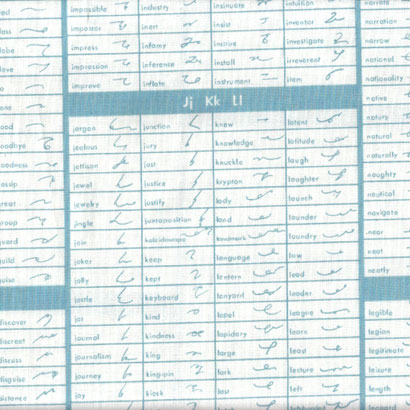 impossible industry insinuate intuition narrate
imposter inert insist inventor narration
impress infamy inspire investigate narrow
impression inference install irreverent national
improve inflate instrument item nationality
native
Jj Kk Ll
jargon junction knew latent
jealous jury knowledge latitude natural
jettison just knuckle laugh naturally
jewel justice krypton laughter naughty
jewelry justify lady launch nautical
jingle juxtaposition land launder navigate
join kaleidoscope landmark laundry near
joker keep language law neat
jolly kept lantern lead neatly
jostle keyboard lanyard leader
jot kind lapel league legible
journal kindness lapidary learn legion
journalism king large lead legitimate
journey kingpin lark lecture leisure
joy kiosk last left length
goodbye
goodness
gossip
great
group
guard
guild
guise
discover
discreet
discuss
disguise
distance